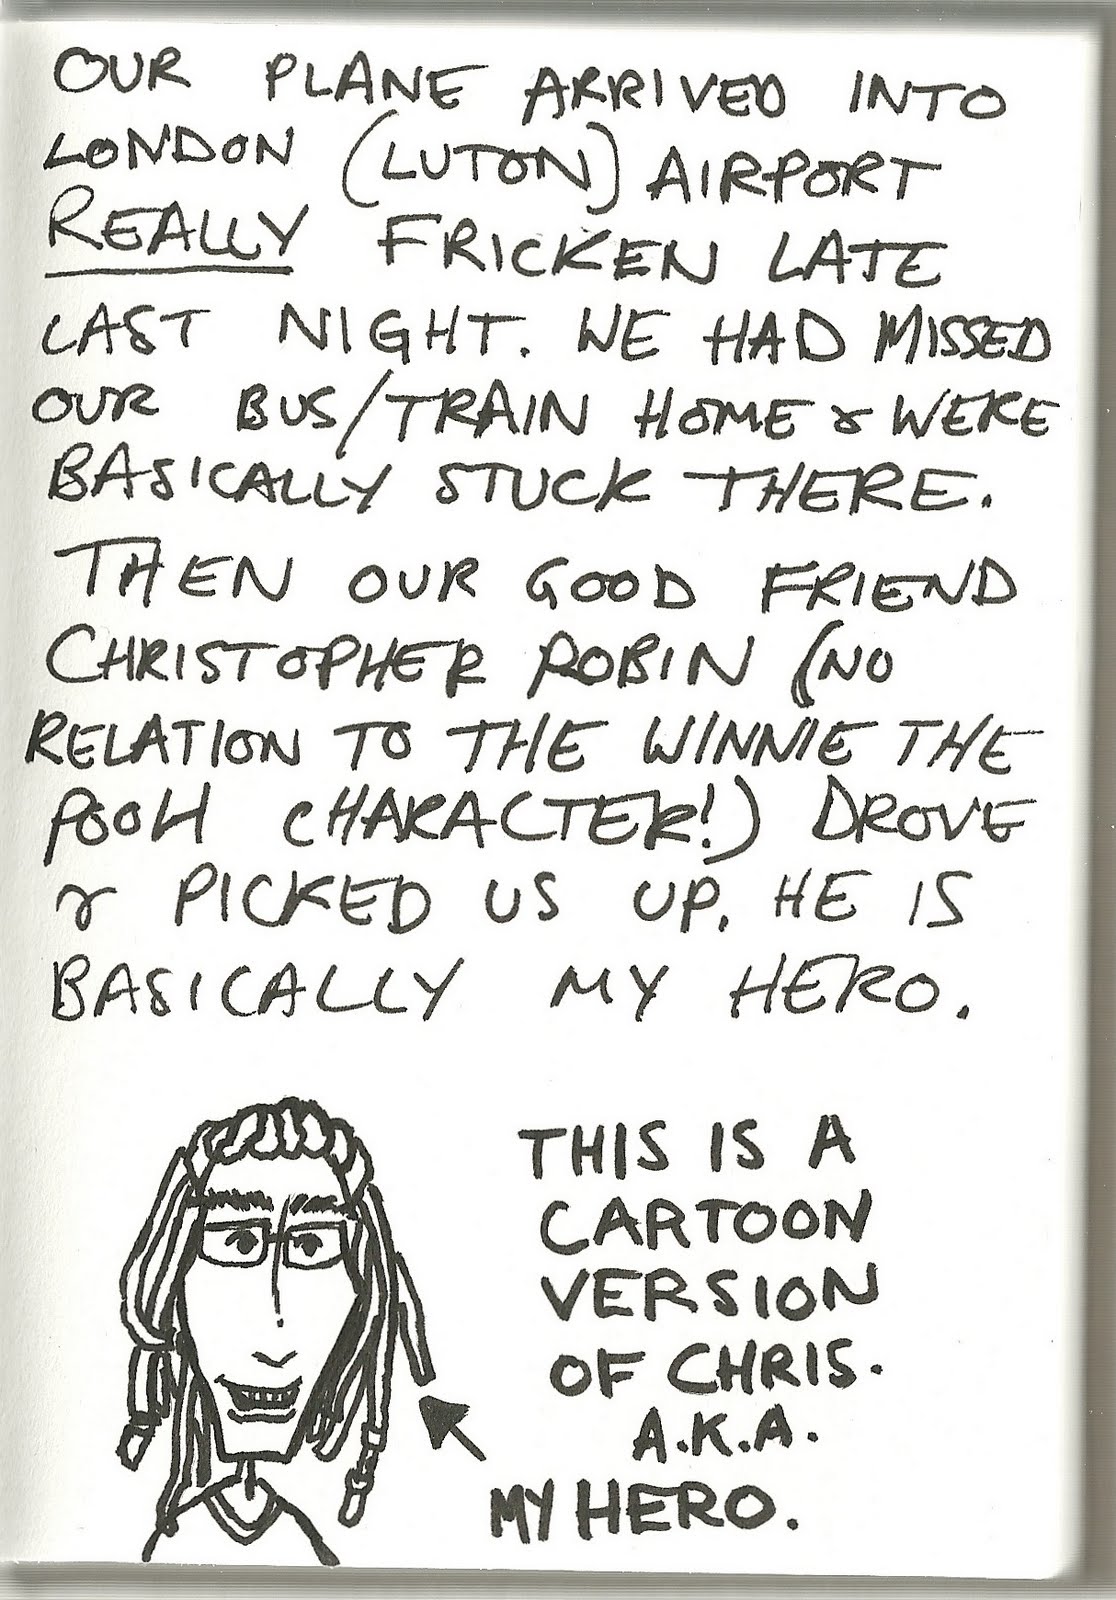 OUR PLANE ARRIVED INTO
LONDON (LUTON) AIRPORT
REALLY FRICKEN LATE
LAST NIGHT. WE HAD MISSED
OUR BUS/TRAIN HOME & WERE
BASICALLY STUCK THERE.
THEN OUR GOOD FRIEND
CHRISTOPHER ROBIN (NO
RELATION TO THE WINNIE THE
POOH CHARACTER!) DROVE
& PICKED US UP. HE IS
BASICALLY MY HERO.
THIS IS A
CARTOON
VERSION
OF CHRIS.
A.K.A.
MY HERO.